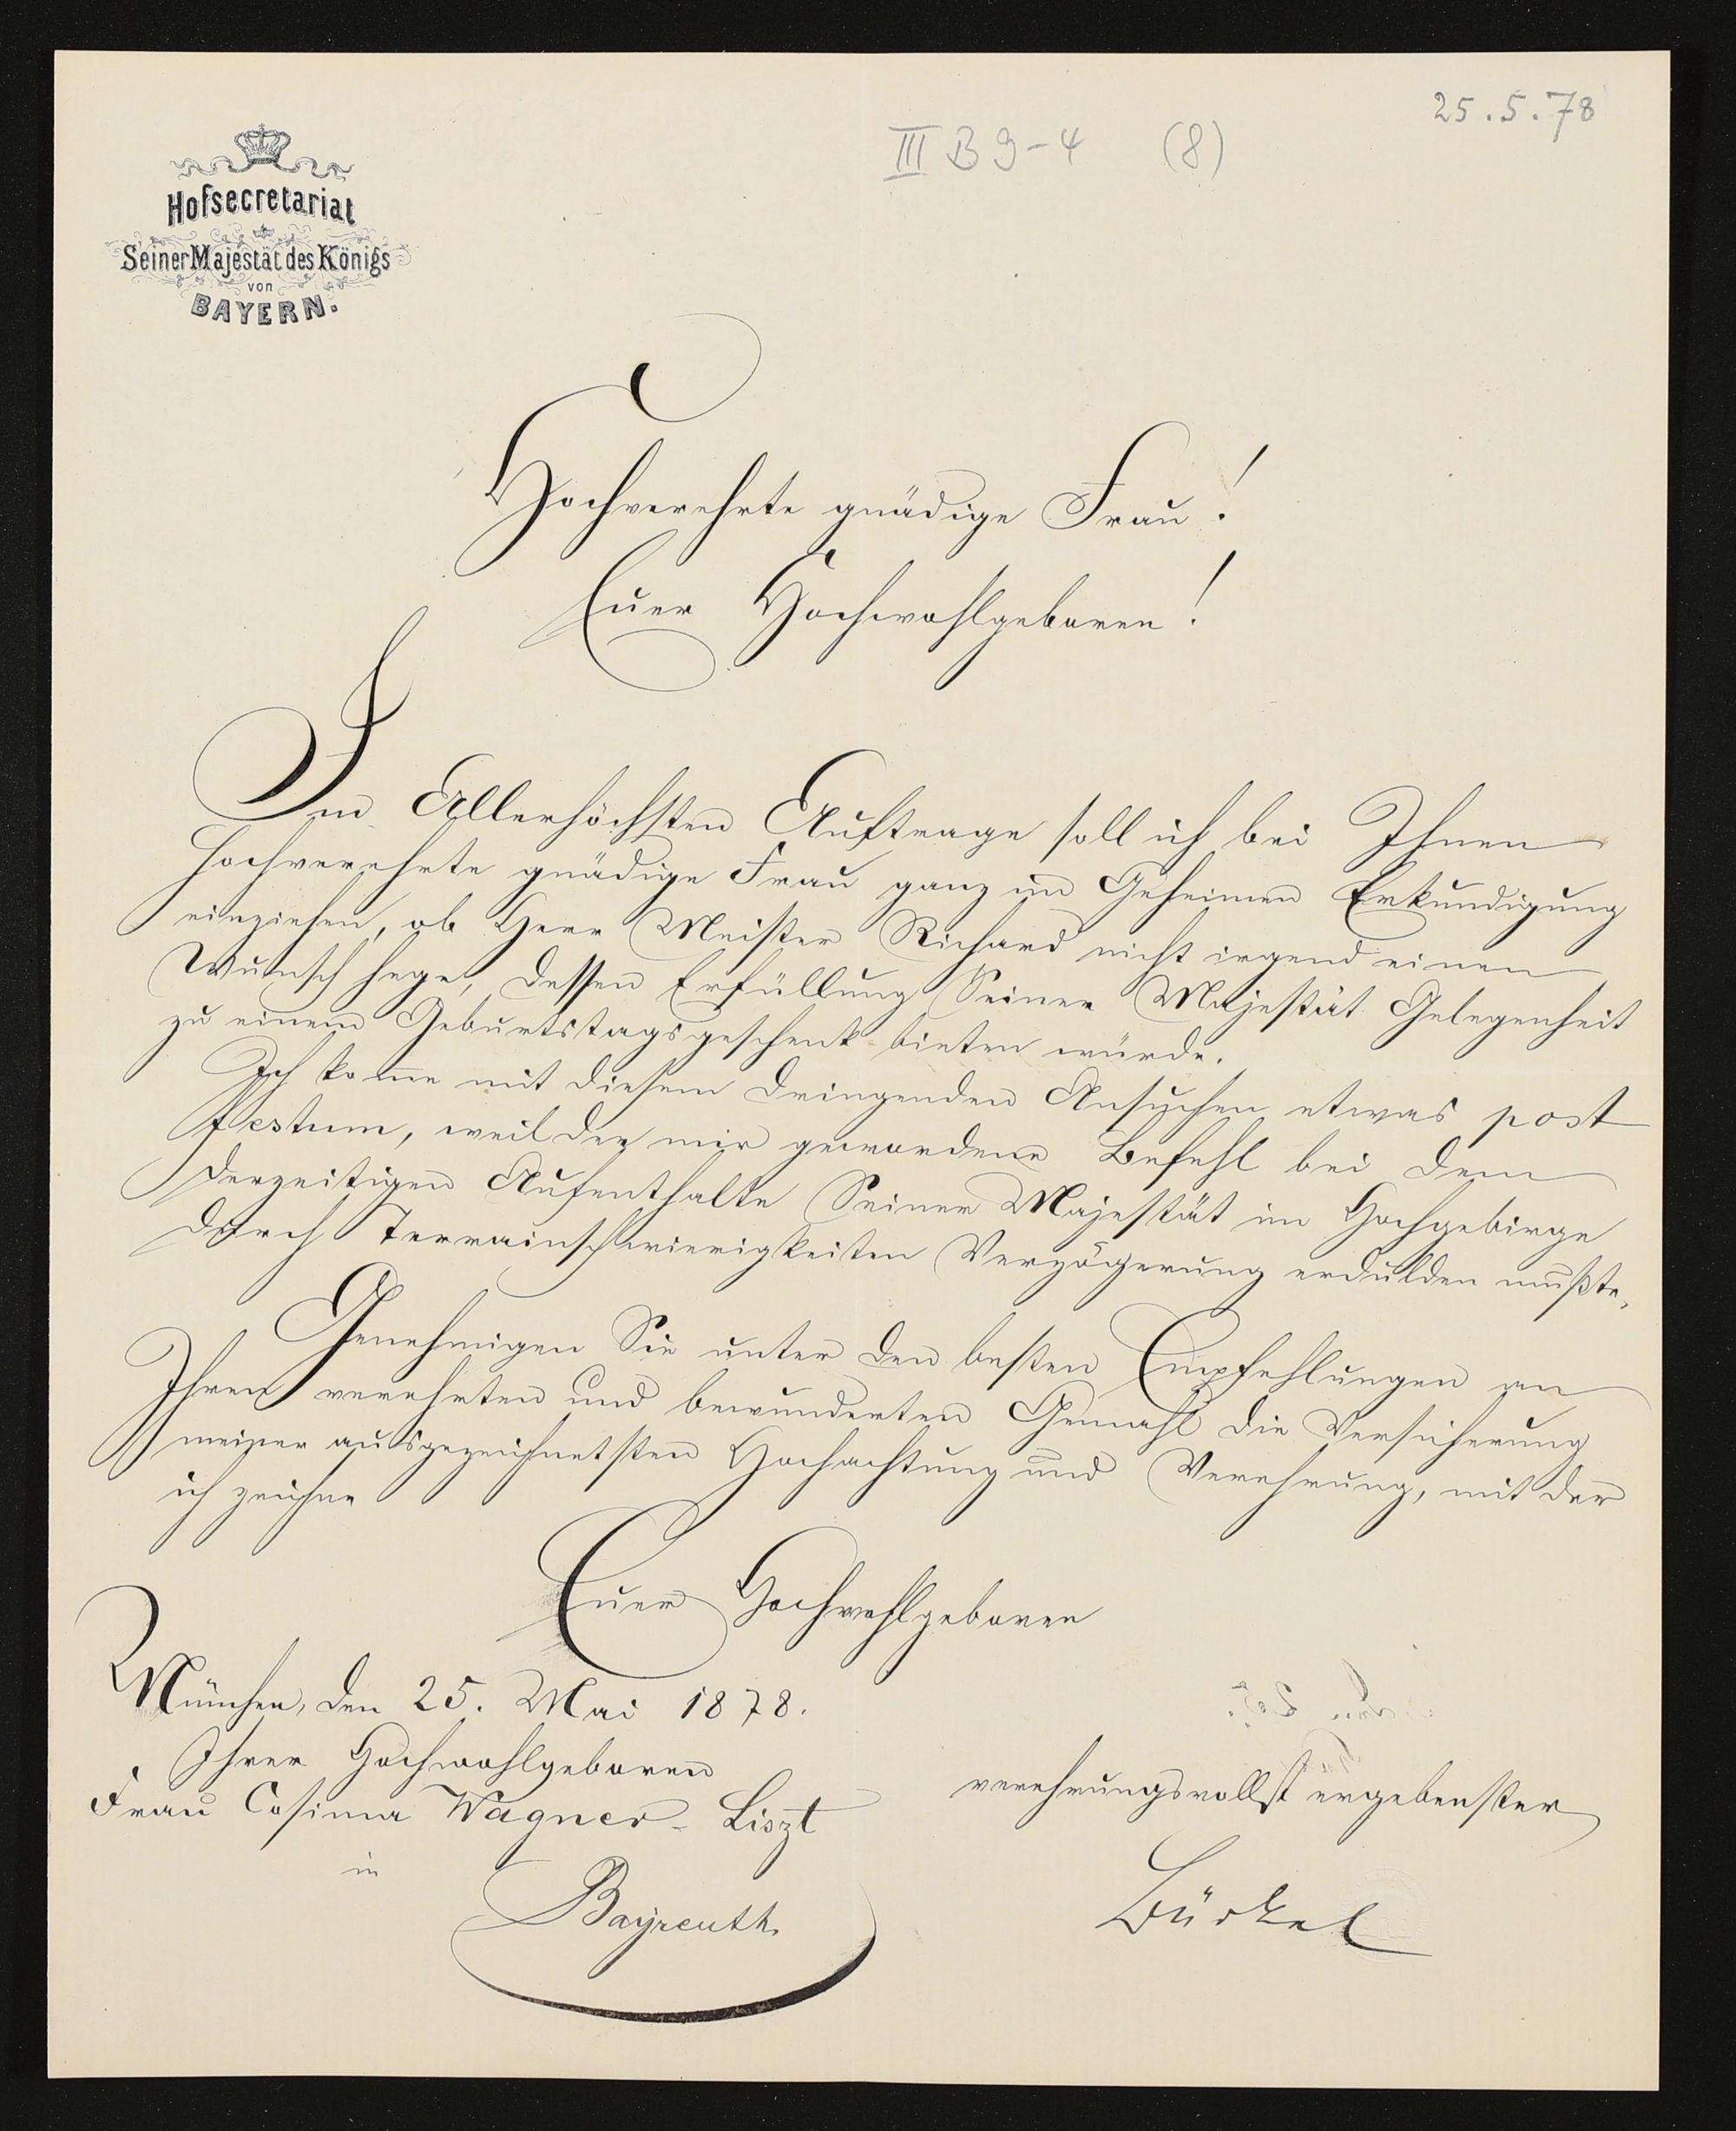 25.5.78
III B 9-4 (8)
Hofsecretariat
Seiner Majestät des Königs
von
BAYERN.
Hochverehrte gnädige Frau!
Euer Hochwohlgeboren!
Im Allerhöchsten Auftrage soll ich bei Ihnen
hochverehrte gnädige Frau ganz im Geheimen Erkundigung
einziehen, ob Herr Meister Richard nicht irgend einen
Wunsch hege, dessen Erfüllung Seiner Majestät Gelegenheit
zu einem Geburtstagsgeschenk bieten würde.
Ich kom̅e mit diesem dringenden Ansuchen etwas post
festum, weil der mir gewordene Befehl bei dem
derzeitigen Aufenthalte Seiner Majestät im Hochgebirge
durch Terrainschwierigkeiten Verzögerung erdulden mußte.
Genehmigen Sie unter den besten Empfehlungen an
Ihren verehrten und bewunderten Gemahl die Versicherung
meiner ausgezeichnetsten Hochachtung und Verehrung, mit der
ich zeichne
Euer Hochwohlgeboren
München, den 25. Mai 1878.
Ihrer Hochwohlgeboren
Frau Cosima Wagner-Liszt
in
Bayreuth
verehrungsvollst ergebenster
Bürkel